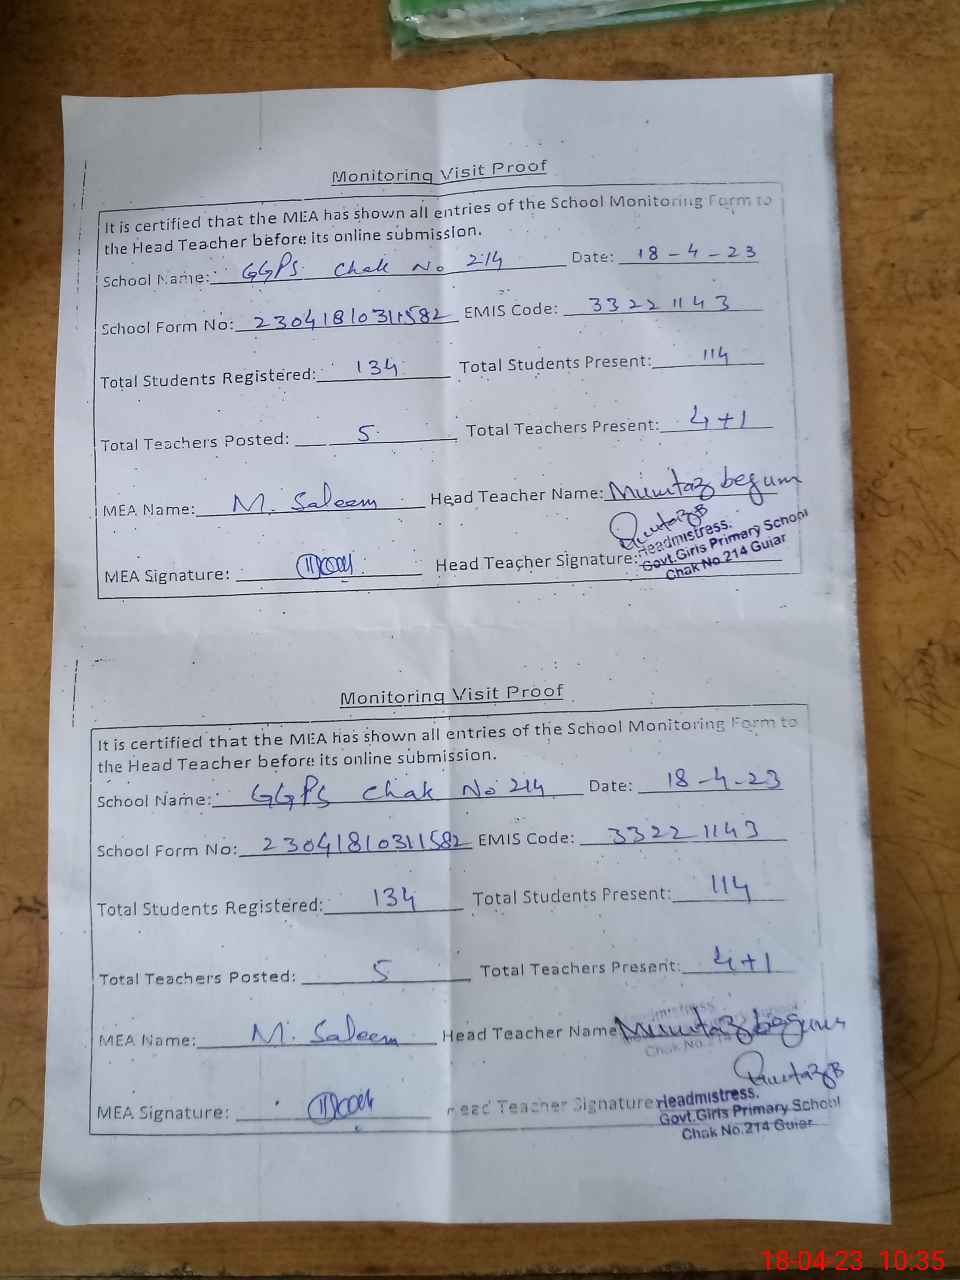 Monitoring Visit Proof
It is certified that the MEA has shown all entries of the School Monitoring Form to
the Head Teacher before its online submission.
School Name: GGPS Chak No 214 Date: 18-4-23
School Form No: 23041810311582 EMIS Code: 33221143
Total Students Registered: 134 Total Students Present: 114
Total Teachers Posted: 5 Total Teachers Present: 4+1
MEA Name: M. Saleem Head Teacher Name: Mumtaz begum
MEA Signature: Head Teacher Signature: Headmistress.
Govt.Girls Primary School
Chak No.214 Gujar
Monitoring Visit Proof
It is certified that the MEA has shown all entries of the School Monitoring Form to
the Head Teacher before its online submission.
School Name: GGPS Chak No 214 Date: 18-4-23
School Form No: 23041810311582 EMIS Code: 33221143
Total Students Registered: 134 Total Students Present: 114
Total Teachers Posted: 5 Total Teachers Present: 4+1
MEA Name: M. Saleem Head Teacher Name Mumtaz begum
MEA Signature: Head Teacher Signature Headmistress.
Govt.Girls Primary School
Chak No.214 Gujar
18-04-23 10:35